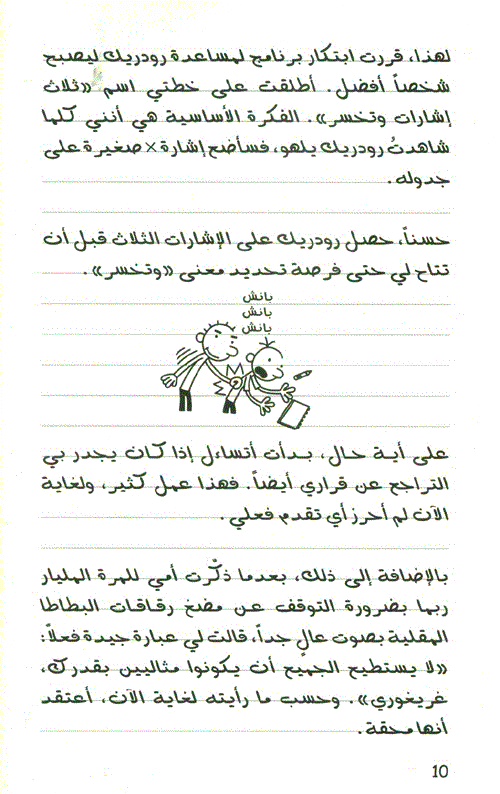 لهذا، قررت ابتكار برنامج لمساعدة رودريك ليصبح
شخصاً أفضل. أطلقت على خطتي اسم «ثلاث
إشارات وتخسر». الفكرة الأساسية هي أنني كلما
شاهدتُ رودريك يلهو، فسأضع إشارة × صغيرة على
جدوله.
حسناً، حصل رودريك على الإشارات الثلاث قبل أن
تتاح لي حتى فرصة تحديد معنى «وتخسر».
بانش
بانش
بانش
على أية حال، بدأت أتساءل إذا كان يجدر بي
التراجع عن قراري أيضاً. فهذا عمل كثير، ولغاية
الآن لم أحرز أي تقدم فعلي.
بالإضافة إلى ذلك، بعدما ذكّرت أمي للمرة المليار
ربما بضرورة التوقف عن مضغ رقاقات البطاطا
المقلية بصوت عالٍ جداً، قالت لي عبارة جيدة فعلاً:
«لا يستطيع الجميع أن يكونوا مثاليين بقدرك،
غريغوري». وحسب ما رأيته لغاية الآن، أعتقد
أنها محقة.
10